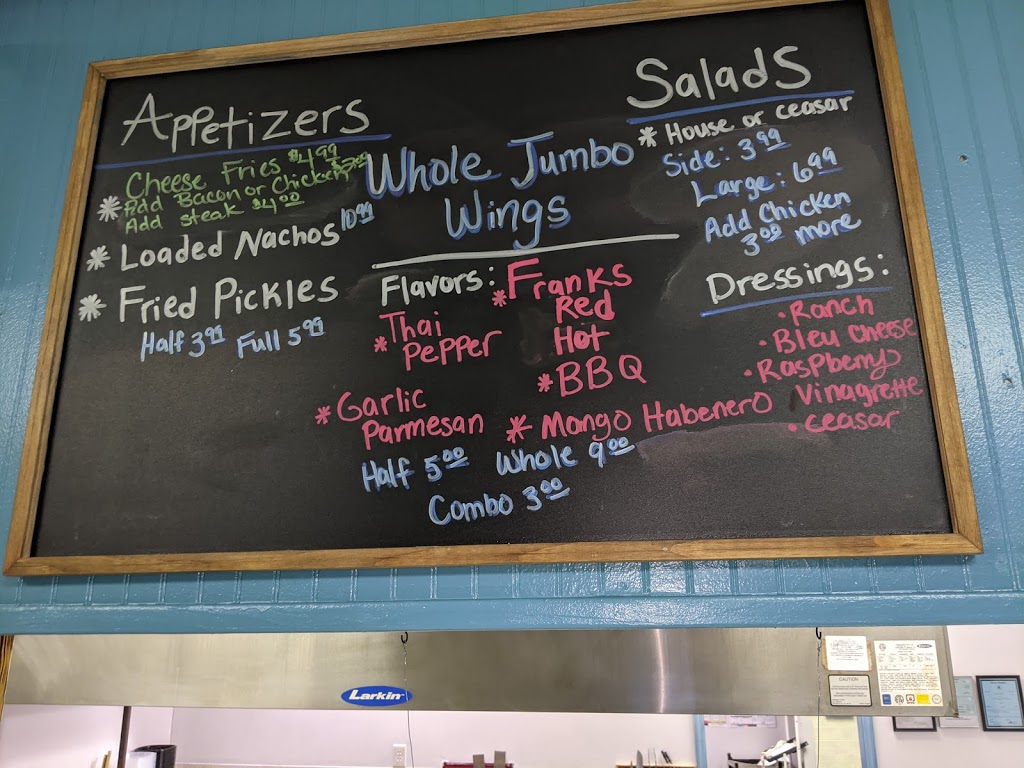 Appetizers
Cheese Fries $4.99
* Add Bacon or Chicken
Add steak $4.00
* Loaded Nachos 10.99
* Fried Pickles
Half 3.99 Full 5.99
Whole Jumbo
Wings
Flavors:
* Franks
Red
Hot
* Thai
Pepper
* BBQ
* Garlic
Parmesan
* Mongo Habenero
Half 5.00 Whole 9.00
Combo 3.00
Salads
* House or ceasar
Side: 3.99
Large: 6.99
Add Chicken
3.00 more
Dressings:
• Ranch
• Bleu Cheese
• Raspberry
Vinagrette
• ceasar
Larkin
CAUTION